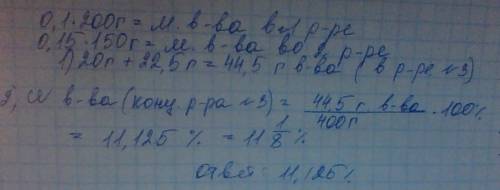 0,1·200г = м. в-ва в 1 р-ре
0,15·150г = м. в-ва во 2 р-ре
1) 20г + 22,5г = 44,5 г в-ва ( в р-ре №3)
2) W в-ва (конц. р-ра №3) = 44,5 г в-ва / 400г · 100%
= 11,125 % = 11 1/8 %
ответ 11,125%